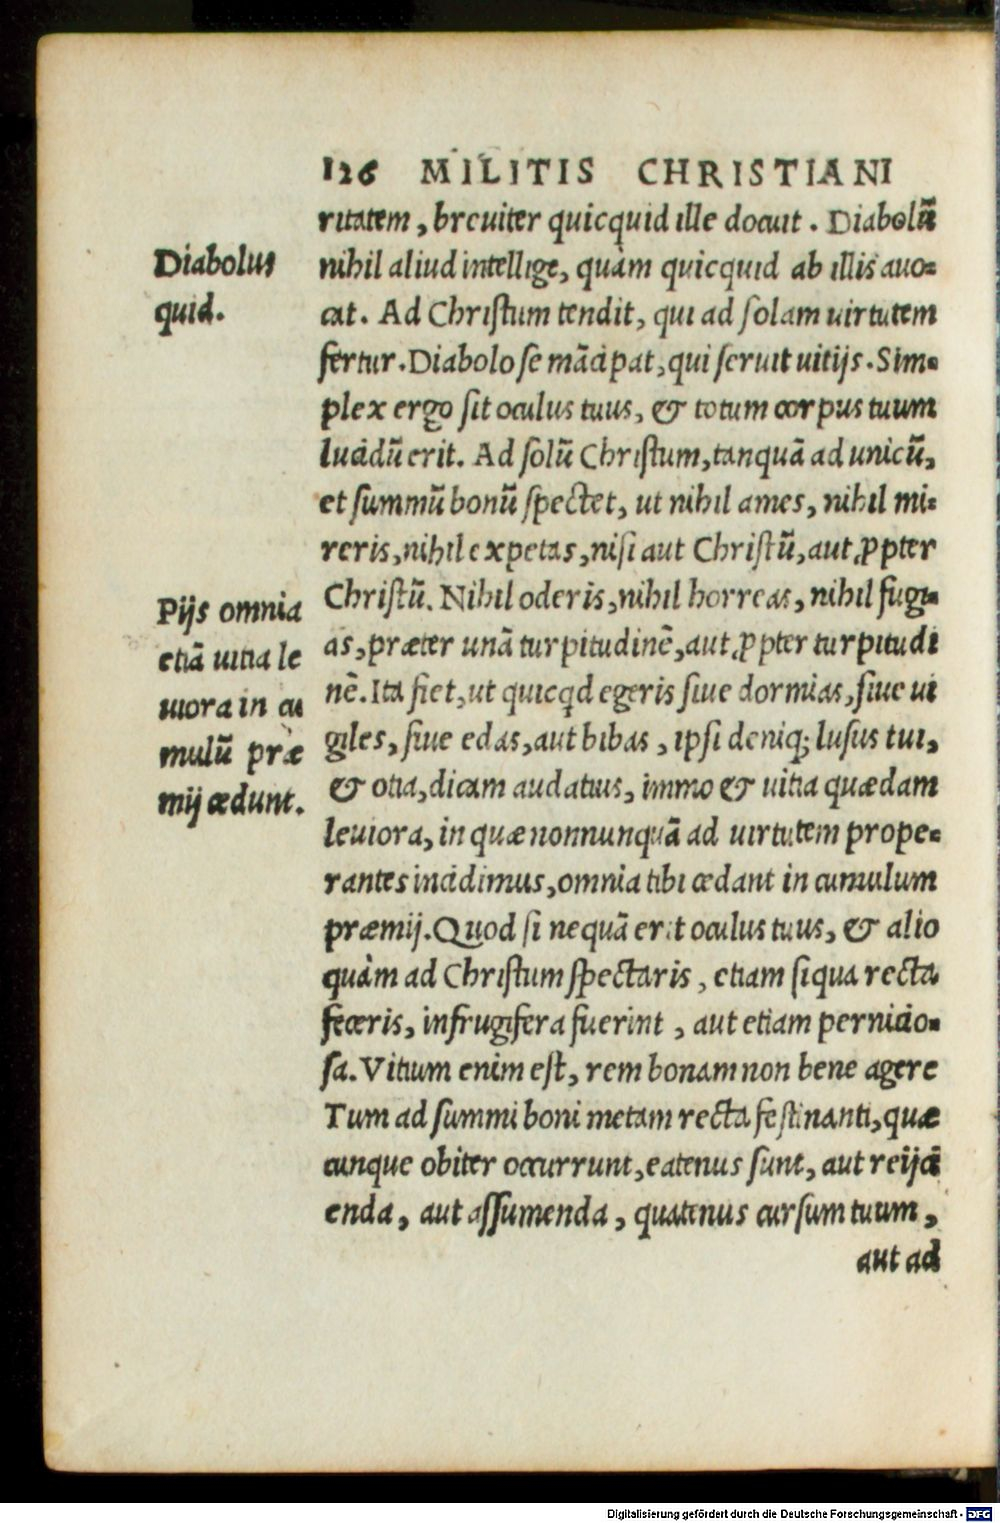 126 MILITIS CHRISTIANI
ritatem, breuiter quicquid ille docuit. Diabolũ
Diabolus
quid.
nihil aliud intellige, quàm quicquid ab illis auo=
cat. Ad Christum tendit, qui ad solam uirtutem
fertur. Diabolo se mãcipat, qui seruit uitijs. Sim=
plex ergo sit oculus tuus, & totum corpus tuum
lucidũ erit. Ad solũ Christum, tanquã ad unicũ,
et summũ bonũ spectet, ut nihil ames, nihil mi=
reris, nihil expetas, nisi aut Christũ, aut ꝓpter
Christũ. Nihil oderis, nihil horreas, nihil fugi=
Pijs omnia
etiã uitia le
uiora in cu
mulũ præ
mij cedunt.
as, præter unã turpitudinẽ, aut ꝓpter turpitudi
nẽ. Ita fiet, ut quicqd egeris siue dormias, siue ui
giles, siue edas, aut bibas, ipsi deniq; lusus tui,
& otia, dicam audatius, immo & uitia quædam
leuiora, in quæ nonnunquã ad uirtutem prope=
rantes incidimus, omnia tibi cedant in cumulum
præmij. Quod si nequã erit oculus tuus, & alio
quàm ad Christum spectaris, etiam siqua recta
feceris, infrugifera fuerint, aut etiam pernicio=
sa. Vitium enim est, rem bonam non bene agere
Tum ad summi boni metam recta festinanti, quæ
cunque obiter occurrunt, eatenus sunt, aut reijci
enda, aut assumenda, quatenus cursum tuum,
aut ad
Digitalisierung gefördert durch die Deutsche Forschungsgemeinschaft - DFG